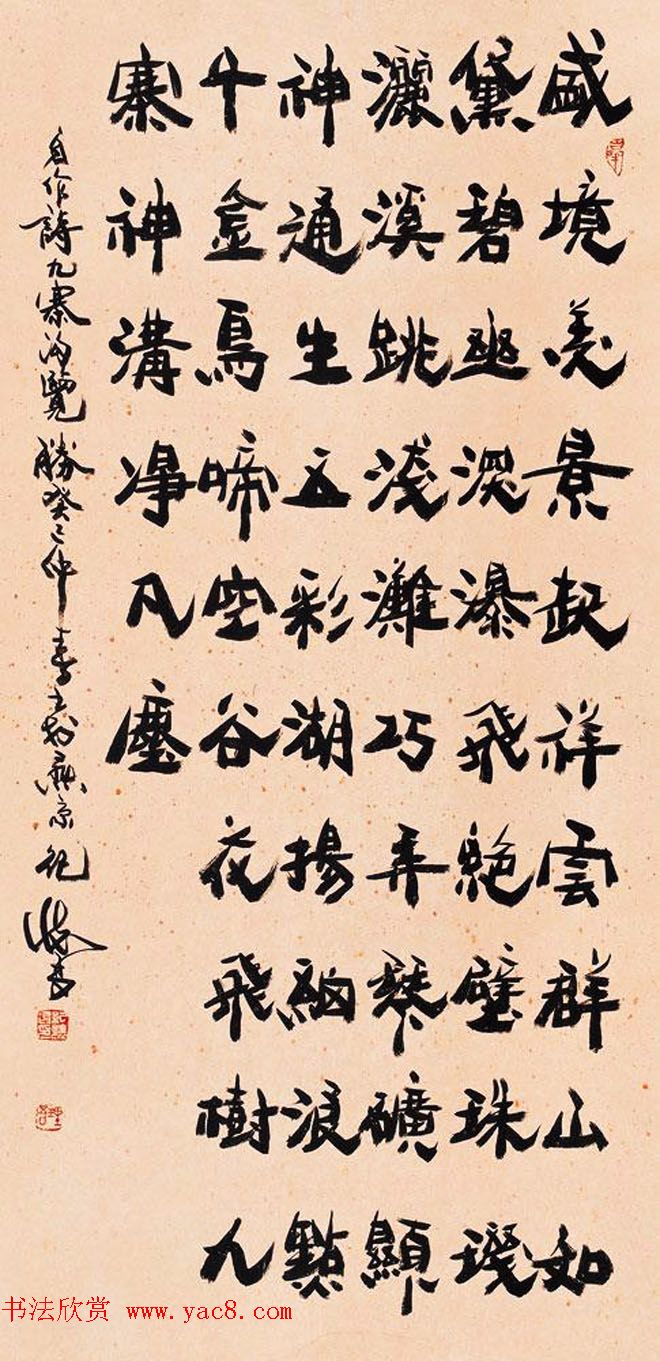 盛境美景起祥雲群山如
黛碧幽深瀑飛絕壁珠璣
灑溪跳淺灘巧弄琴礦顯
神通生五彩湖揚細浪點
千金鳥啼空谷花飛樹九
寨神溝淨凡塵
自作詩九寨沟覽勝癸巳仲春於燕京
书法欣赏 www.yac8.com